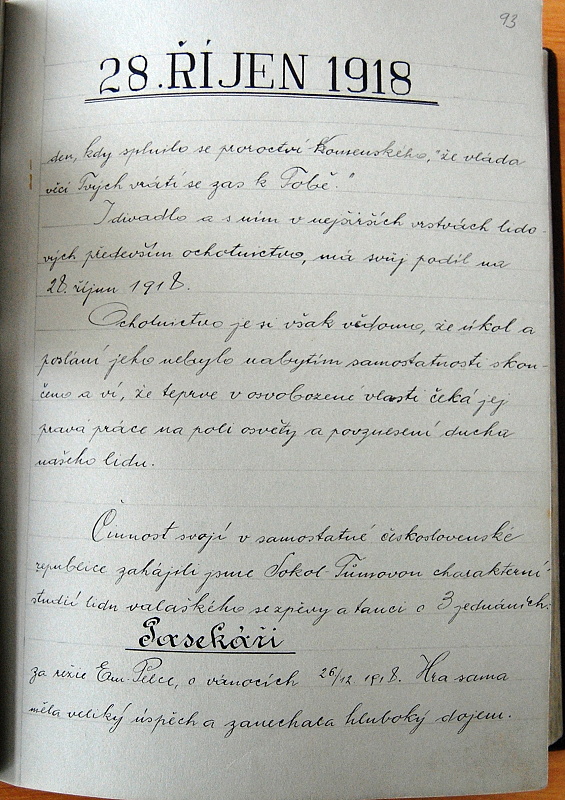 93
28. ŘÍJEN 1918
den, kdy splnilo se proroctví Komenského, "že vláda
věcí Tvých vrátí se zas k Tobě."
I divadlo a s ním v nejširších vrstvách lido-
vých především ochotnictvo, má svůj podíl na
28. říjnu 1918.
Ochotnictvo je si však vědomo, že úkol a
poslání jeho nebylo nabytím samostatnosti skon-
čeno a ví, že teprve v osvobozené vlasti čeká jej
pravá práce na poli osvěty a povznesení ducha
našeho lidu.
Činnost svojí v samostatné československé
republice zahájili jsme Sokol-Tůmovou charakterní
studií lidu valašského se zpěvy a tanci o 3 jednáních.
Pasekáři
za režie Em. Pelce, o vánocích 26/12 1918. Hra sama
měla veliký úspěch a zanechala hluboký dojem.